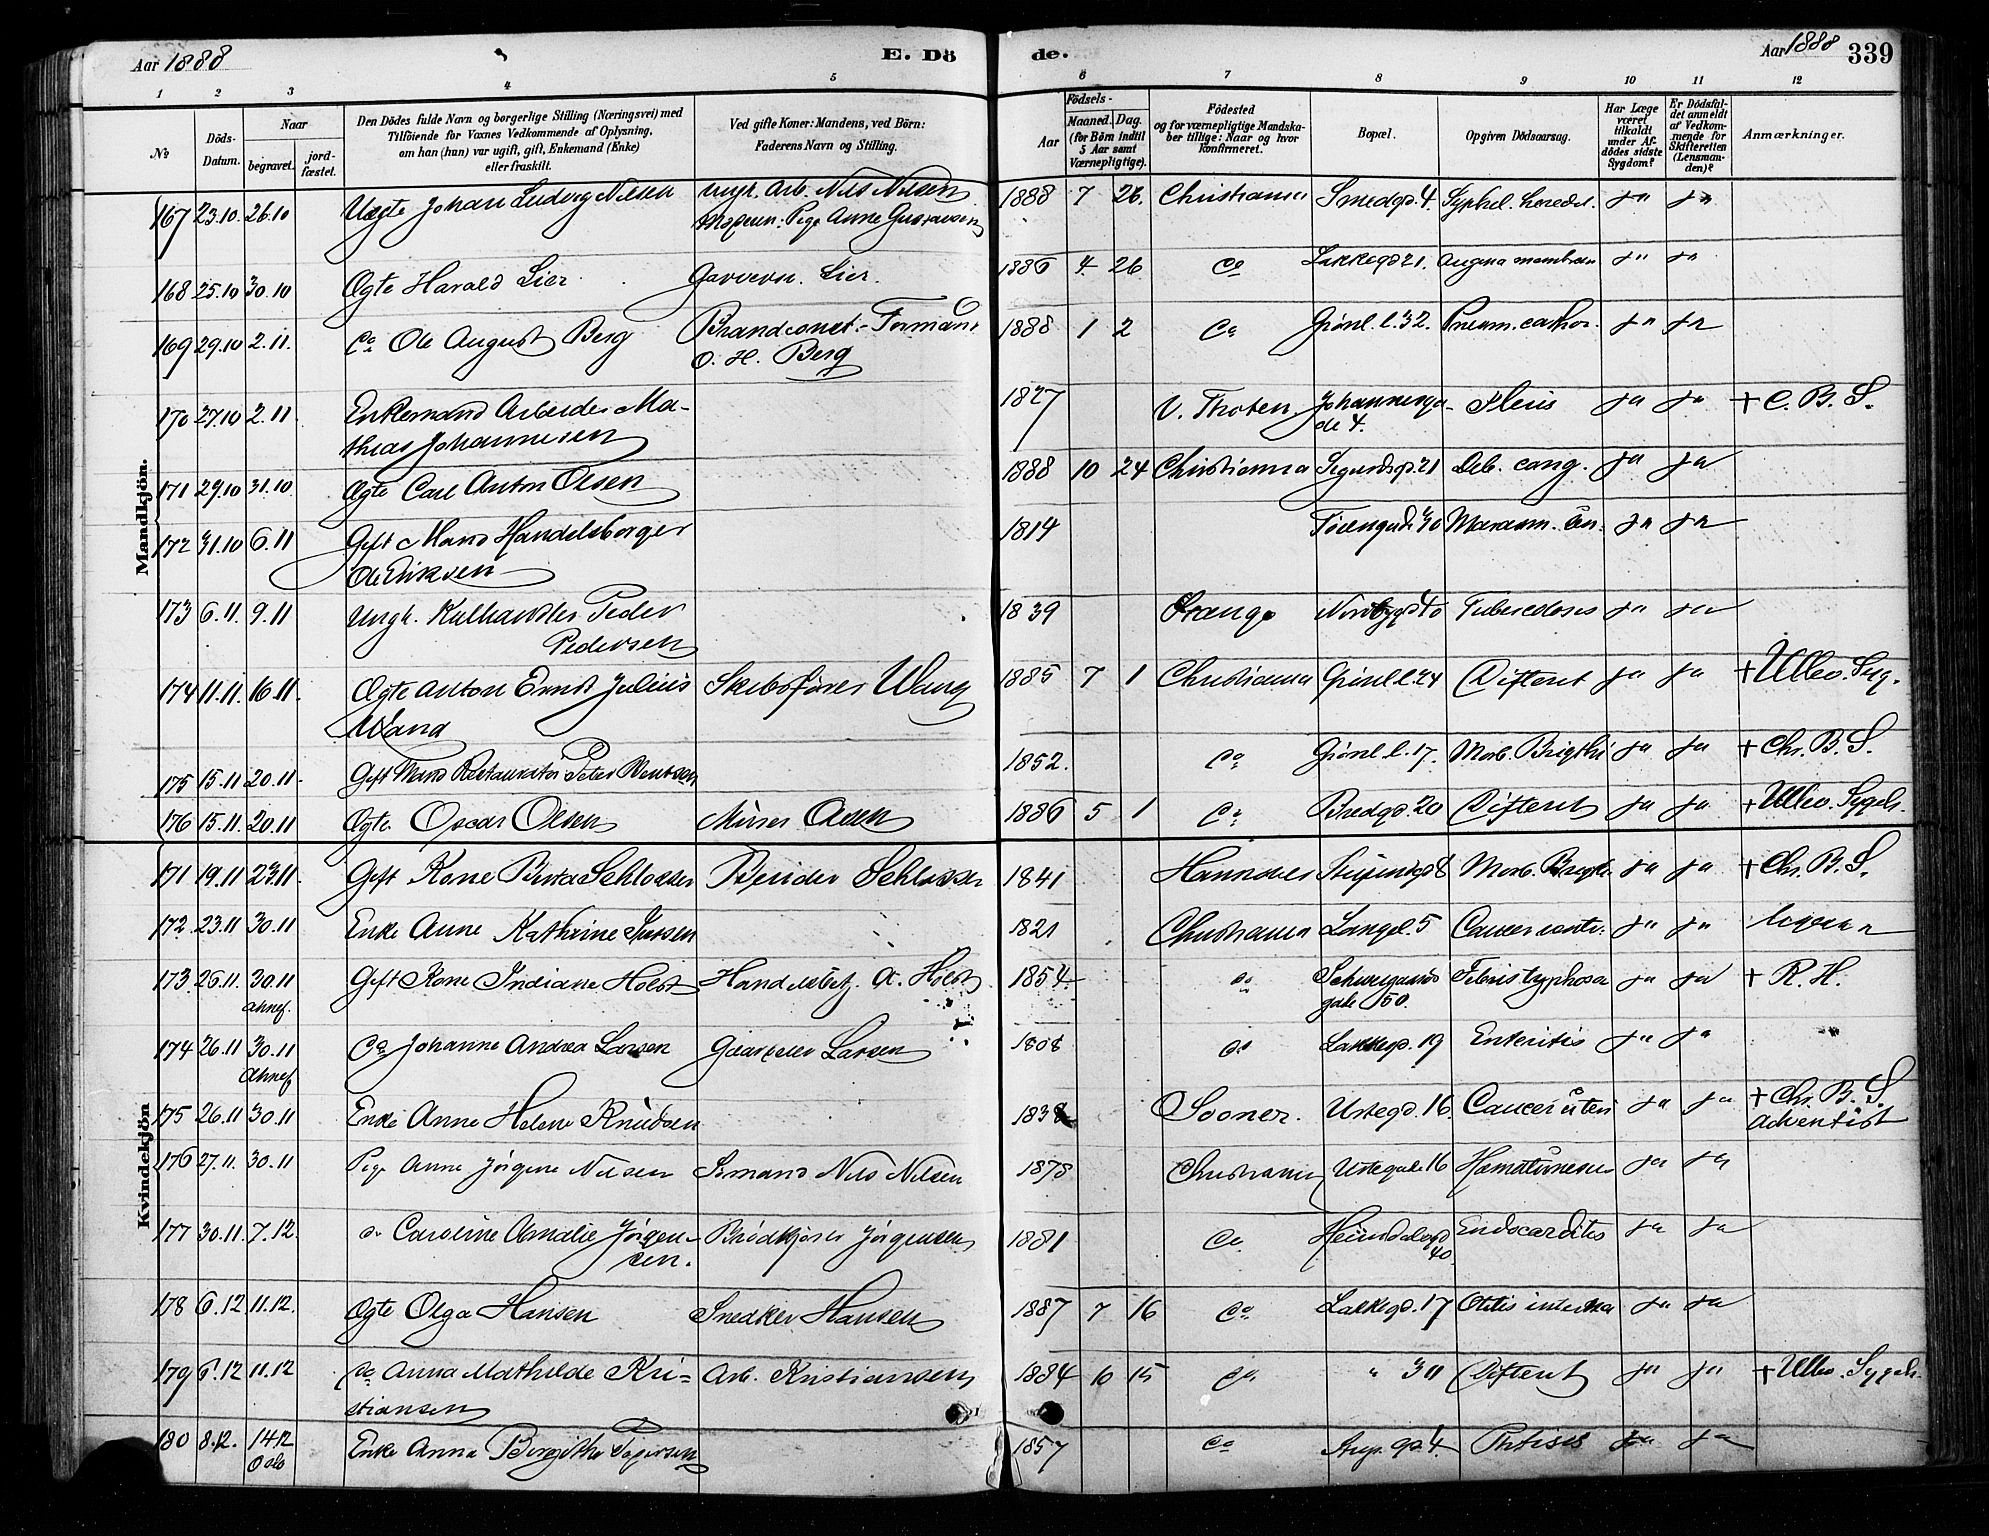 Aar 1888
E. Dö
de.
Aar 1888
339
1 2 3 4 5 6 7 8 9 10 11 12
No
Döds-
Datum.
Naar
begravet.
jord-
fæstet.
Den Dödes fulde Navn og borgerlige Stilling (Næringsvei) med
Tilföiende for Voxnes Vedkommende af Oplysning,
om han (hun) var ugift, gift, Enkemand (Enke)
eller fraskilt.
Ved gifte Koner: Mandens, ved Börn:
Faderens Navn og Stilling.
Födsels-
Aar
Maaned. Dag.
(for Börn indtil
5 Aar samt
Værnepligtige).
Födested
og for værnepligtige Mandska-
ber tillige: Naar og hvor
konfirmeret.
Bopæl.
Opgiven Dödsaarsag.
Har Læge
været
tilkaldt
under Af-
dödes sidste
Sygdom?
Er Dödsfal-
det anmeldt
af Vedkom-
mende for
Skifteretten
(Lensman-
den)?
Anmærkninger.
Mandkjön.
167 23.10. 26.10 Uægte Johan Ludvig Nilsen Ungk. Arb. Nils Nilsen 1888 7 26. Christiania Smedgd. 4. Syphil. hered. ja ja
Pige Anne Gustavsen
168 25.10 30.10 Ægte Harald Lier Garversv. Lier. 1886 4 26 do Lakkegd 21. Angina membran ja ja
169 29.10 2.11. do Ole August Berg Brandconst.-Formand 1888 1 2 do Grönl. l. 32. Pneum. cathar. ja ja
O. H. Berg
170 27.10 2.11 Enkemand Arbeider Ma- 1827 V. Thoten Johannesga- Pleuris ja ja + C. B. S.
thias Johannesen de 4.
171 29.10 31.10 Ægte Carl Anton Olsen 1888 10 24 Christiania Sigurdsgd. 21 Deb. cong. ja ja
172 31.10 6.11 Gift Mand Handelsborger 1814 Töiengd. 30 Marasm. sen. ja ja
Ole Eriksen
173 6.11 9.11 Ungk. Kulhandler Peder 1839 Strange Nordbygd 40 Tuberculosis ja ja
Pedersen
174 11.11. 16.11 Ægte Anton Ernst Julius Skibsförer Wang 1885 7 1 Christiania Grönl. l. 24 Difterit ja ja + Ullev. Syg.
Wang
175 15.11 20.11 Gift Mand Restauratör Peter Berntsen 1852. do Grönl. l. 17. Morb. Brigthii ja ja + Chr. B. S.
176 15.11. 20.11 Ægte Oscar Olsen Murer Olsen 1886 5 1 do Bredgd. 20 Difterit ja ja + Ullev. Sygeh.
Kvindekjön
171 19.11 23.11. Gift Kone Berta Schlosser Bereider Schlosser 1841 Hannover 8 Morb. Brigth. ja ja + Chr. B. S.
172. 23.11 30.11 Enke Anne Kathrine Iversen 1821 Christiania Langel. 5 Cancer ventr. ja ja
173. 26.11 30.11 Gift Kone Indiane Holst Handelsbetj. A. Holst 1854 do Schweigaards Febris typhosa ja ja + R. H.
gade 50
174 26.11 30.11 do Johanne Andrea Larsen Larsen 1808 do Lakkegd. 19 Enteritis ja ja
175 26.11 30.11 Enke Anne Helene Knudsen 1838 Sooner. Urtegd. 16. Cancer uteri ja ja + Chr. B. S.
Adventist
176 27.11. 30.11 Pige Anne Jörgine Nilsen Sömand Nils Nilsen 1878 Christiania Urtegade 16 ja ja
177 30.11 7.12. do Caroline Amalie Jörgen- Brödkjörer Jörgensen 1881 do Heimdalsgd Endocarditis ja ja
sen. 40
178 6.12 11.12. Ægte Olga Hansen Snedker Hansen 1887 7 16 do Lakkegd. 17 Otitis interna ja ja
179 6.12 11.12 do Anna Mathilde Kri- Arb. Kristiansen 1884 10 15 do " 30 Difterit ja ja + Ullev. Sygeh.
stiansen
180 8.12. 14.12 Enke Anna Birgitha 1857 do 4 Phtisis ja ja
Oslo